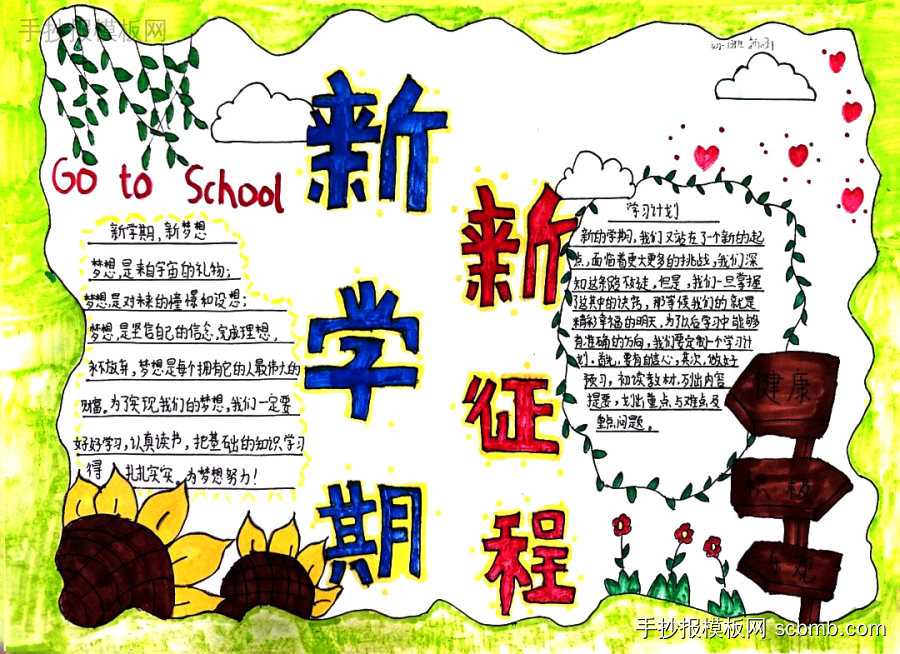 手抄报模板网
新学期
新征程
Go to School
新学期,新梦想
梦想,是来自宇宙的礼物;
梦想是对未来的憧憬和设想;
梦想是坚信自己的信念,完成理想,
永不放弃,梦想是每个拥有它的人最伟大的
财富。为了实现我们的梦想,我们一定要
好好学习,认真读书,把基础的知识学习
得 扎扎实实。为梦想努力!
学习计划
新的学期,我们又站在了一个新的起
点,面临着更大更多的挑战,我们深
知这条路
但是,我们一旦掌握
了这其中的诀窍,那等候我们的就是
精彩幸福的明天,为了以后学习中能够
有准确的方向,我们要定制一个学习计
划。首先,要有自信心,其次,做好
预习,初读教材,列出内容
提要,划出重点与难点及
重点问题。
健康
积极
手抄报模板网 scbmb.com